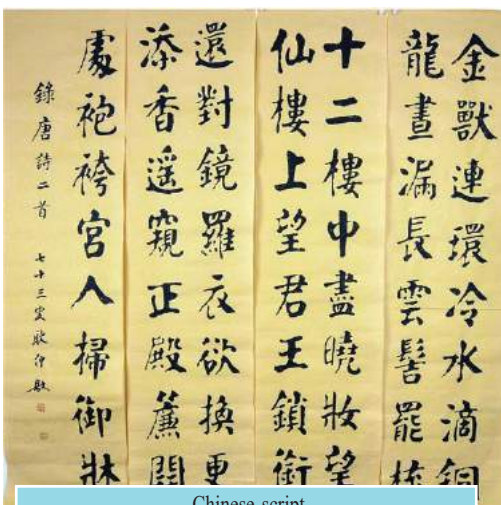 金獸連環冷水滴銅
龍晝漏長雲髻罷梳
十二樓中盡曉妝望
仙樓上望君王鎖銜
還對鏡羅衣欲換更
添香遥窺正殿簾開
處袍袴宮人掃御牀
錄唐詩二首
七十三叟
Chinese script